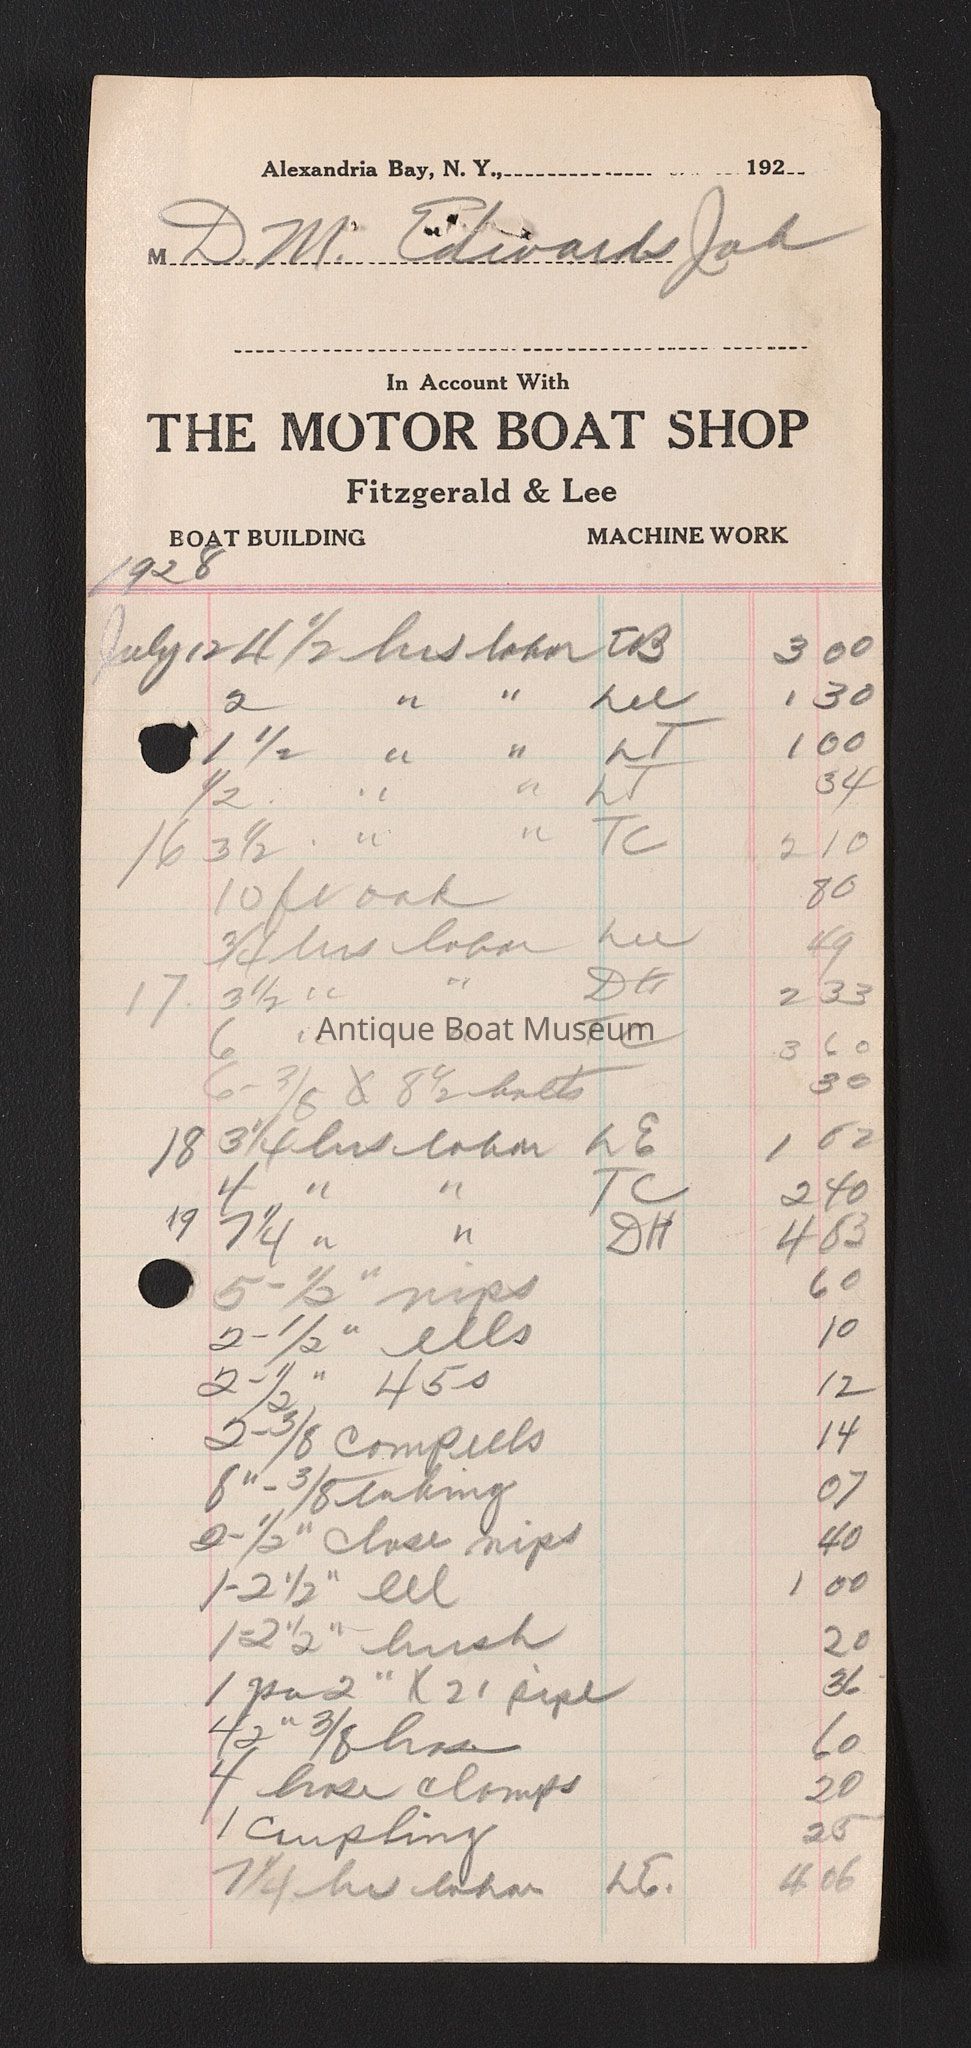 Alexandria Bay, N. Y., 192
M D. M. Edwards Job
In Account With
THE MOTOR BOAT SHOP
Fitzgerald & Lee
BOAT BUILDING MACHINE WORK
1928
July 12 4 1/2 hrs labor TB 3 00
2 " " Lee 1 30
1 1/2 " " LT 1 00
1/2 " " LT 34
16 3 1/2 " " TC 2 10
10 ft oak 80
3/4 hrs labor Lee 49
17 3 1/2 " " DH 2 33
6 " " TC 3 60
6-3/8 X 8 1/2 bolts 30
18 3 1/4 hrs labor LE 1 82
4 " " TC 2 40
19 7 1/4 " " DH 4 83
5-1/2" nips 60
2-1/2" ells 10
2-1/2" 45s 12
2-3/8 comp ells 14
8"-3/8 tubing 07
2-1/2" close nips 40
1-2 1/2" ell 1 00
1-2 1/2" bush 20
1 pc 2" X 21 pipe 36
42" 3/8 hose 60
4 hose clamps 20
1 coupling 25
7 1/4 hrs labor LE. 4 06
Antique Boat Museum